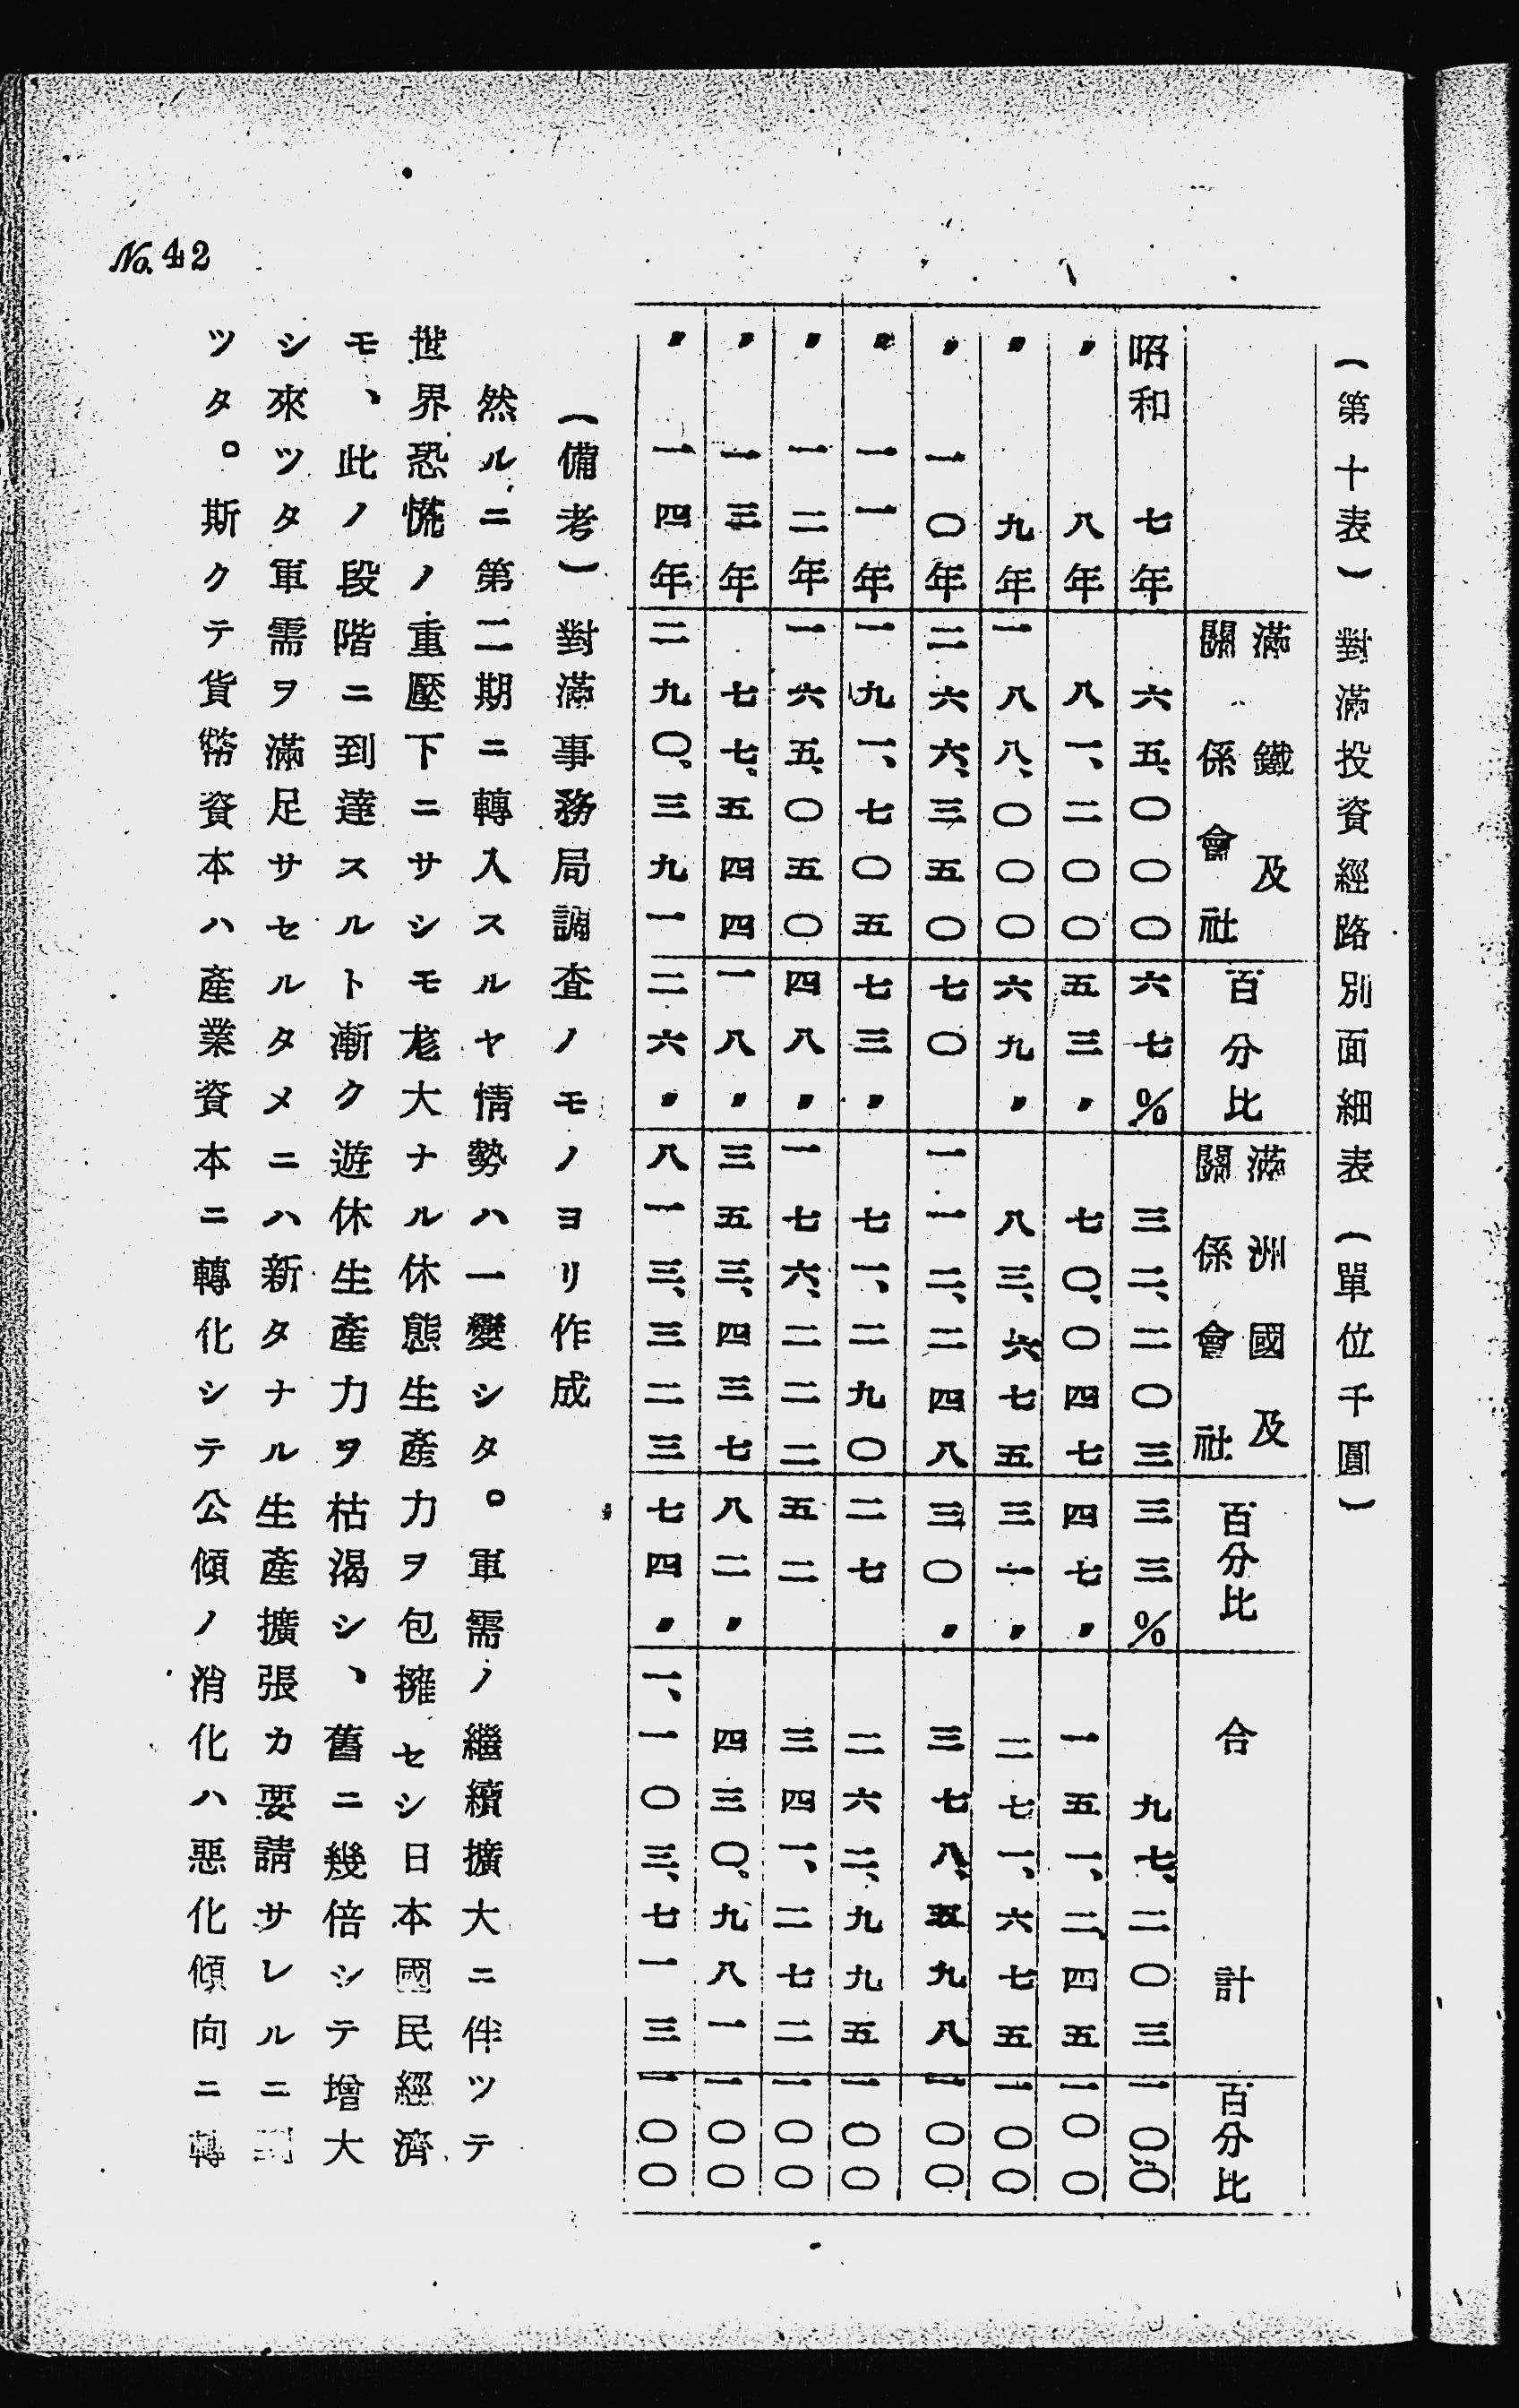 (第十表)對滿投資經路別面細表(單位千圓)
滿鐵及關係會社 百分比 滿洲國及關係會社 百分比 合計 百分比
昭和七年 六五、〇〇〇 六七% 三二、二〇三 三三% 九七、二〇三 一〇〇
〃八年 八一、二〇〇 五三〃 七〇、〇四七 四七〃 一五一、二四五 一〇〇
〃九年 一八八、〇〇〇 六九〃 八三、六七五 三一〃 二七一、六七五 一〇〇
〃一〇年 二六六、三五〇 七〇 一一二、二四八 三〇〃 三七八、五九八 一〇〇
〃一一年 一九一、七〇五 七三〃 七一、二九〇 二七 二六二、九九五 一〇〇
〃一二年 一六五、〇五〇 四八〃 一七六、二二二 五二 三四一、二七二 一〇〇
〃一三年 七七、五四四 一八〃 三五三、四三七 八二〃 四三〇、九八一 一〇〇
〃一四年 二九〇、三九一 二六〃 八一三、三二三 七四〃 一、一〇三、七一三 一〇〇
(備考)對滿事務局調査ノモノヨリ作成
然ルニ第二期ニ轉入スルヤ情勢ハ一變シタ。軍需ノ繼續擴大ニ伴ツテ
世界恐慌ノ重壓下ニサシモ尨大ナル休態生產力ヲ包擁セシ日本國民經濟
モ、此ノ段階ニ到達スルト漸ク遊休生產力ヲ枯渴シ、舊ニ幾倍シテ增大
シ來ツタ軍需ヲ滿足サセルタメニハ新タナル生產擴張カ要請サレルニ到
ツタ。斯クテ貨幣資本ハ產業資本ニ轉化シテ公債ノ消化ハ惡化傾向ニ轉
No. 42